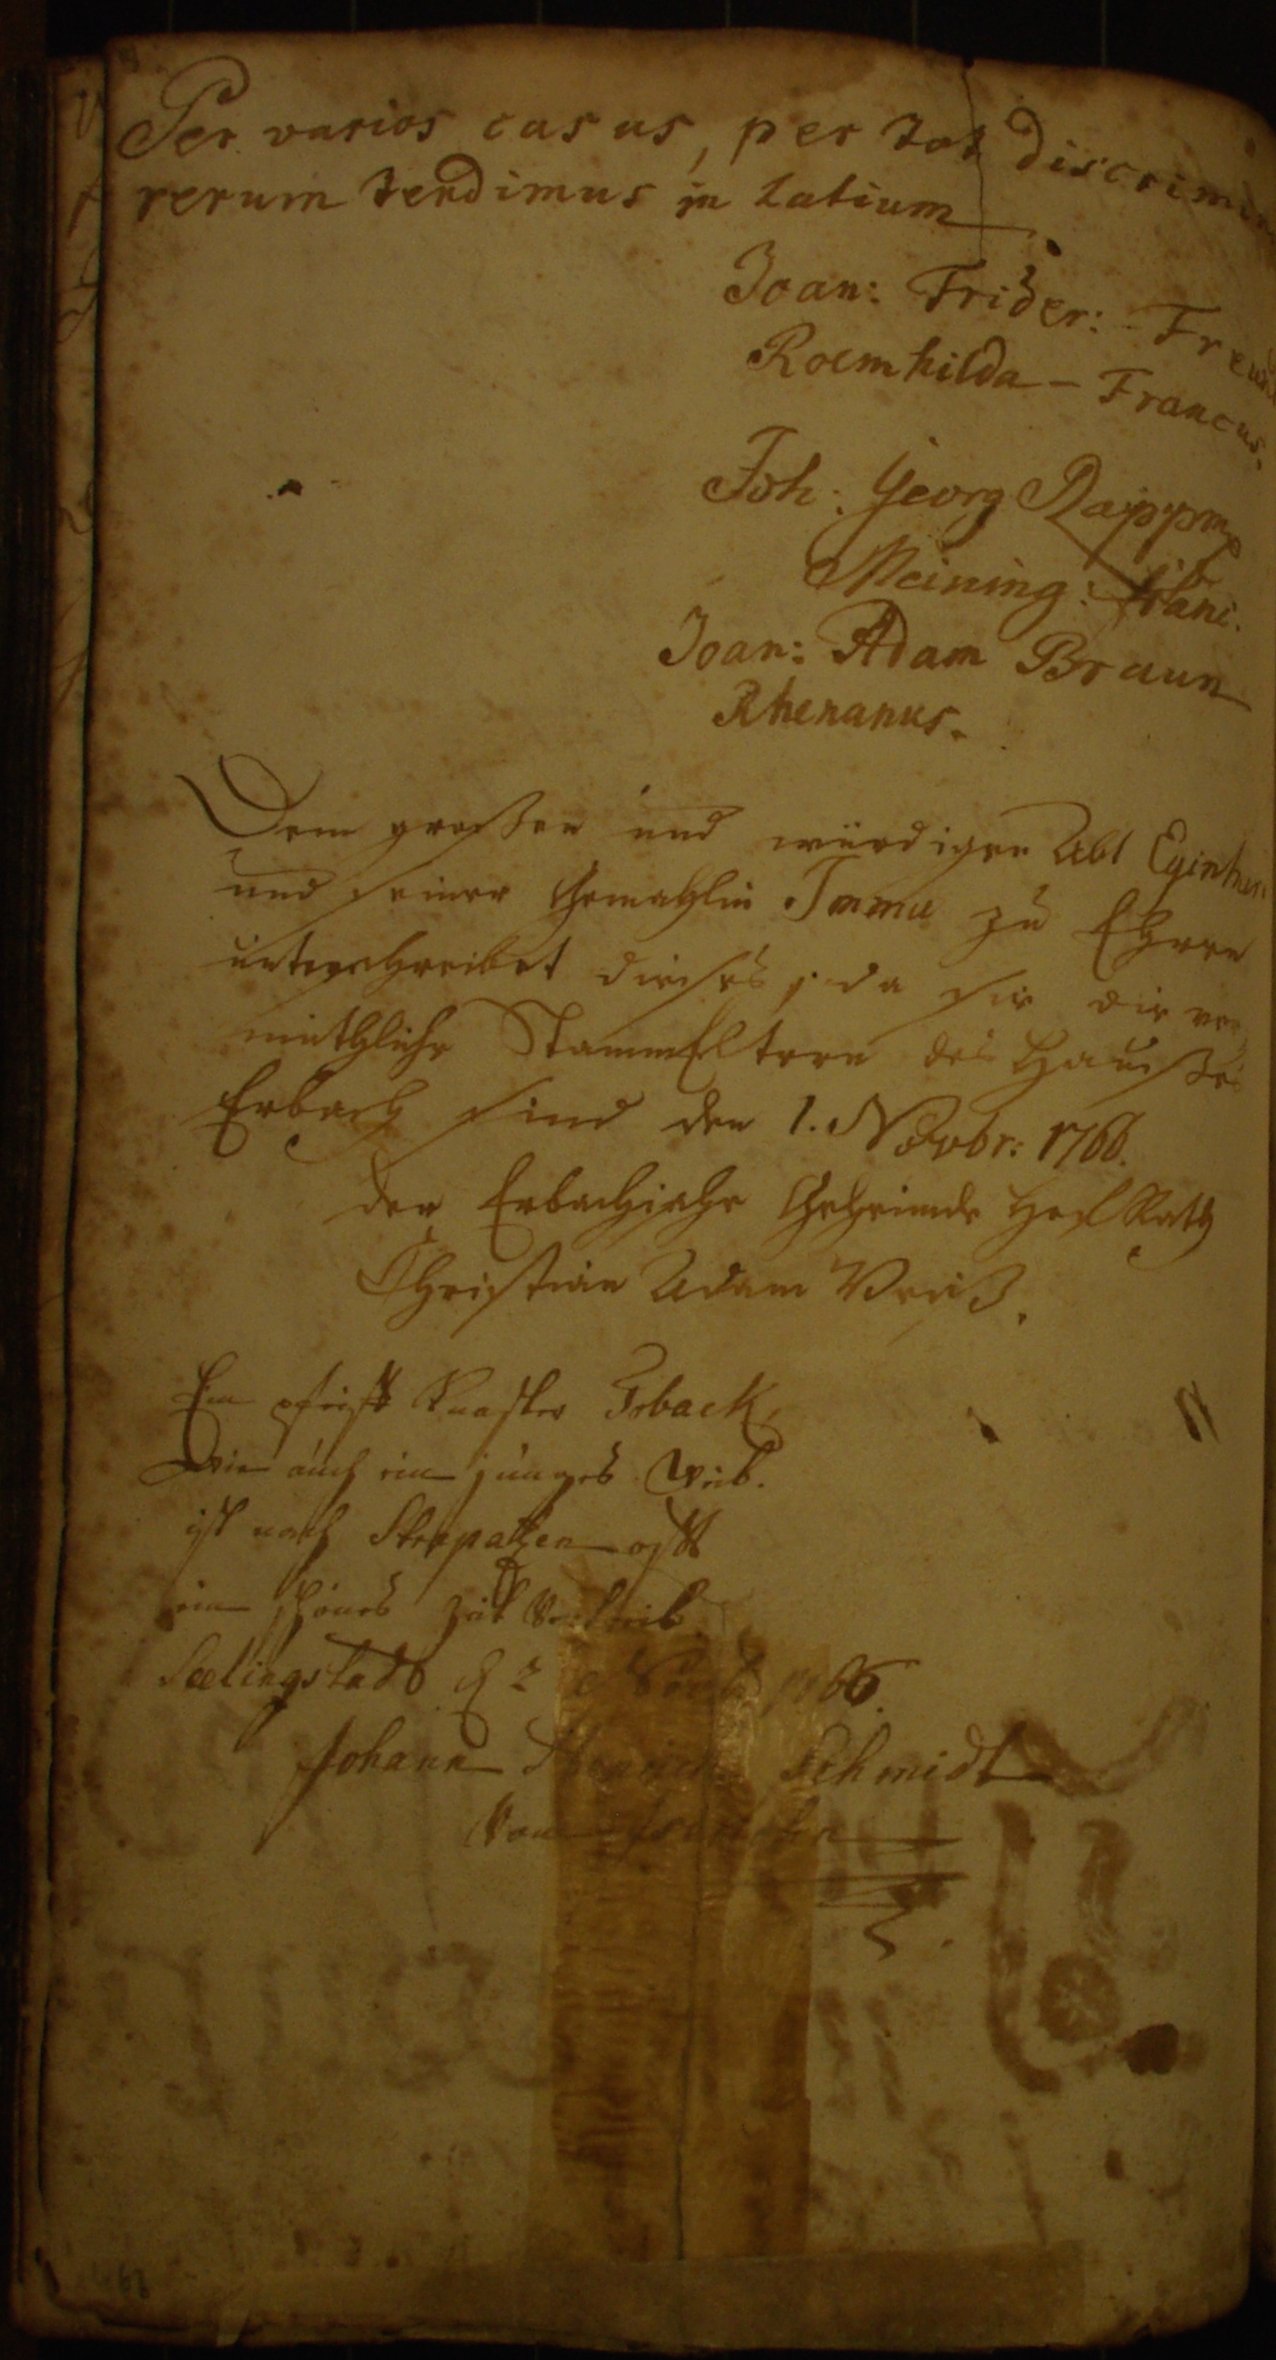 Per varios casus, per tot discrimina
rerum tendimus in Latium
Joan: Frider: Freund
Roemhilda-Francus.
Joh: Georg
Meining: Franc.
Joan: Adam Braun
Rhenanus.
Dem großen und würdigen Abt Eginhard
und seiner Gemahlin Imma zu Ehren
unterschreibet dieses, da sie die ver
muthliche StammEltern des Haußes
Erbach sind den 1. Novbr: 1766.
der Erbachische Geheimde Hof Rath
Christian Adam
Ein pfeiff Knaster Toback,
wie auch ein junges Weib.
ist nach Strapatzen offt
ein schönes Zeit Vertreib
Seelingstadt d 2 1766.
Johann Schmidt
Von